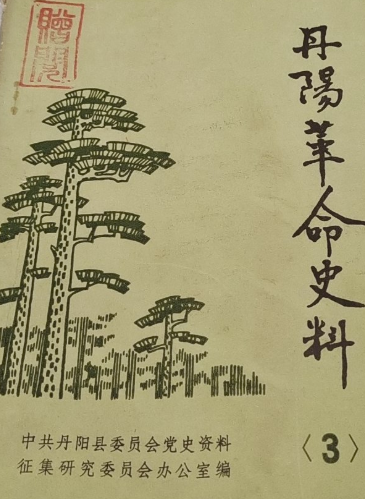 丹陽革命史料
〈3〉
中共丹阳县委员会党史资料
征集研究委员会办公室编